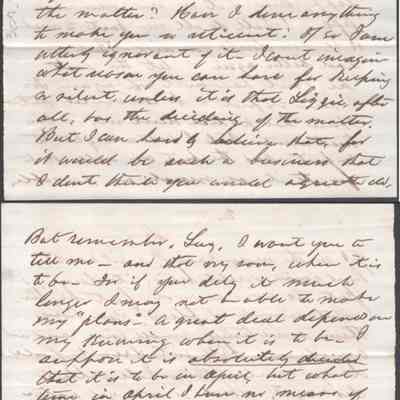 the matter? Have I done anything
to make you so reticent? If so I am
utterly ignorant of it. I cant imagine
what reason you can have for keeping
so silent, unless it is that Lizzie, after
all, has the deciding of the matter.
But I can hardly believe that, for
it would be such a business that
I dont think you would agree to do.
But remember, Lucy, I want you to
tell me – and that very soon, when it is
to be – For if you delay it much
longer I may not be able to make
my "plans" – A great deal depends on
my knowing when it is to be – I
suppose it is absolutely decided
that it is to be in April, but what
time in April I have no means of